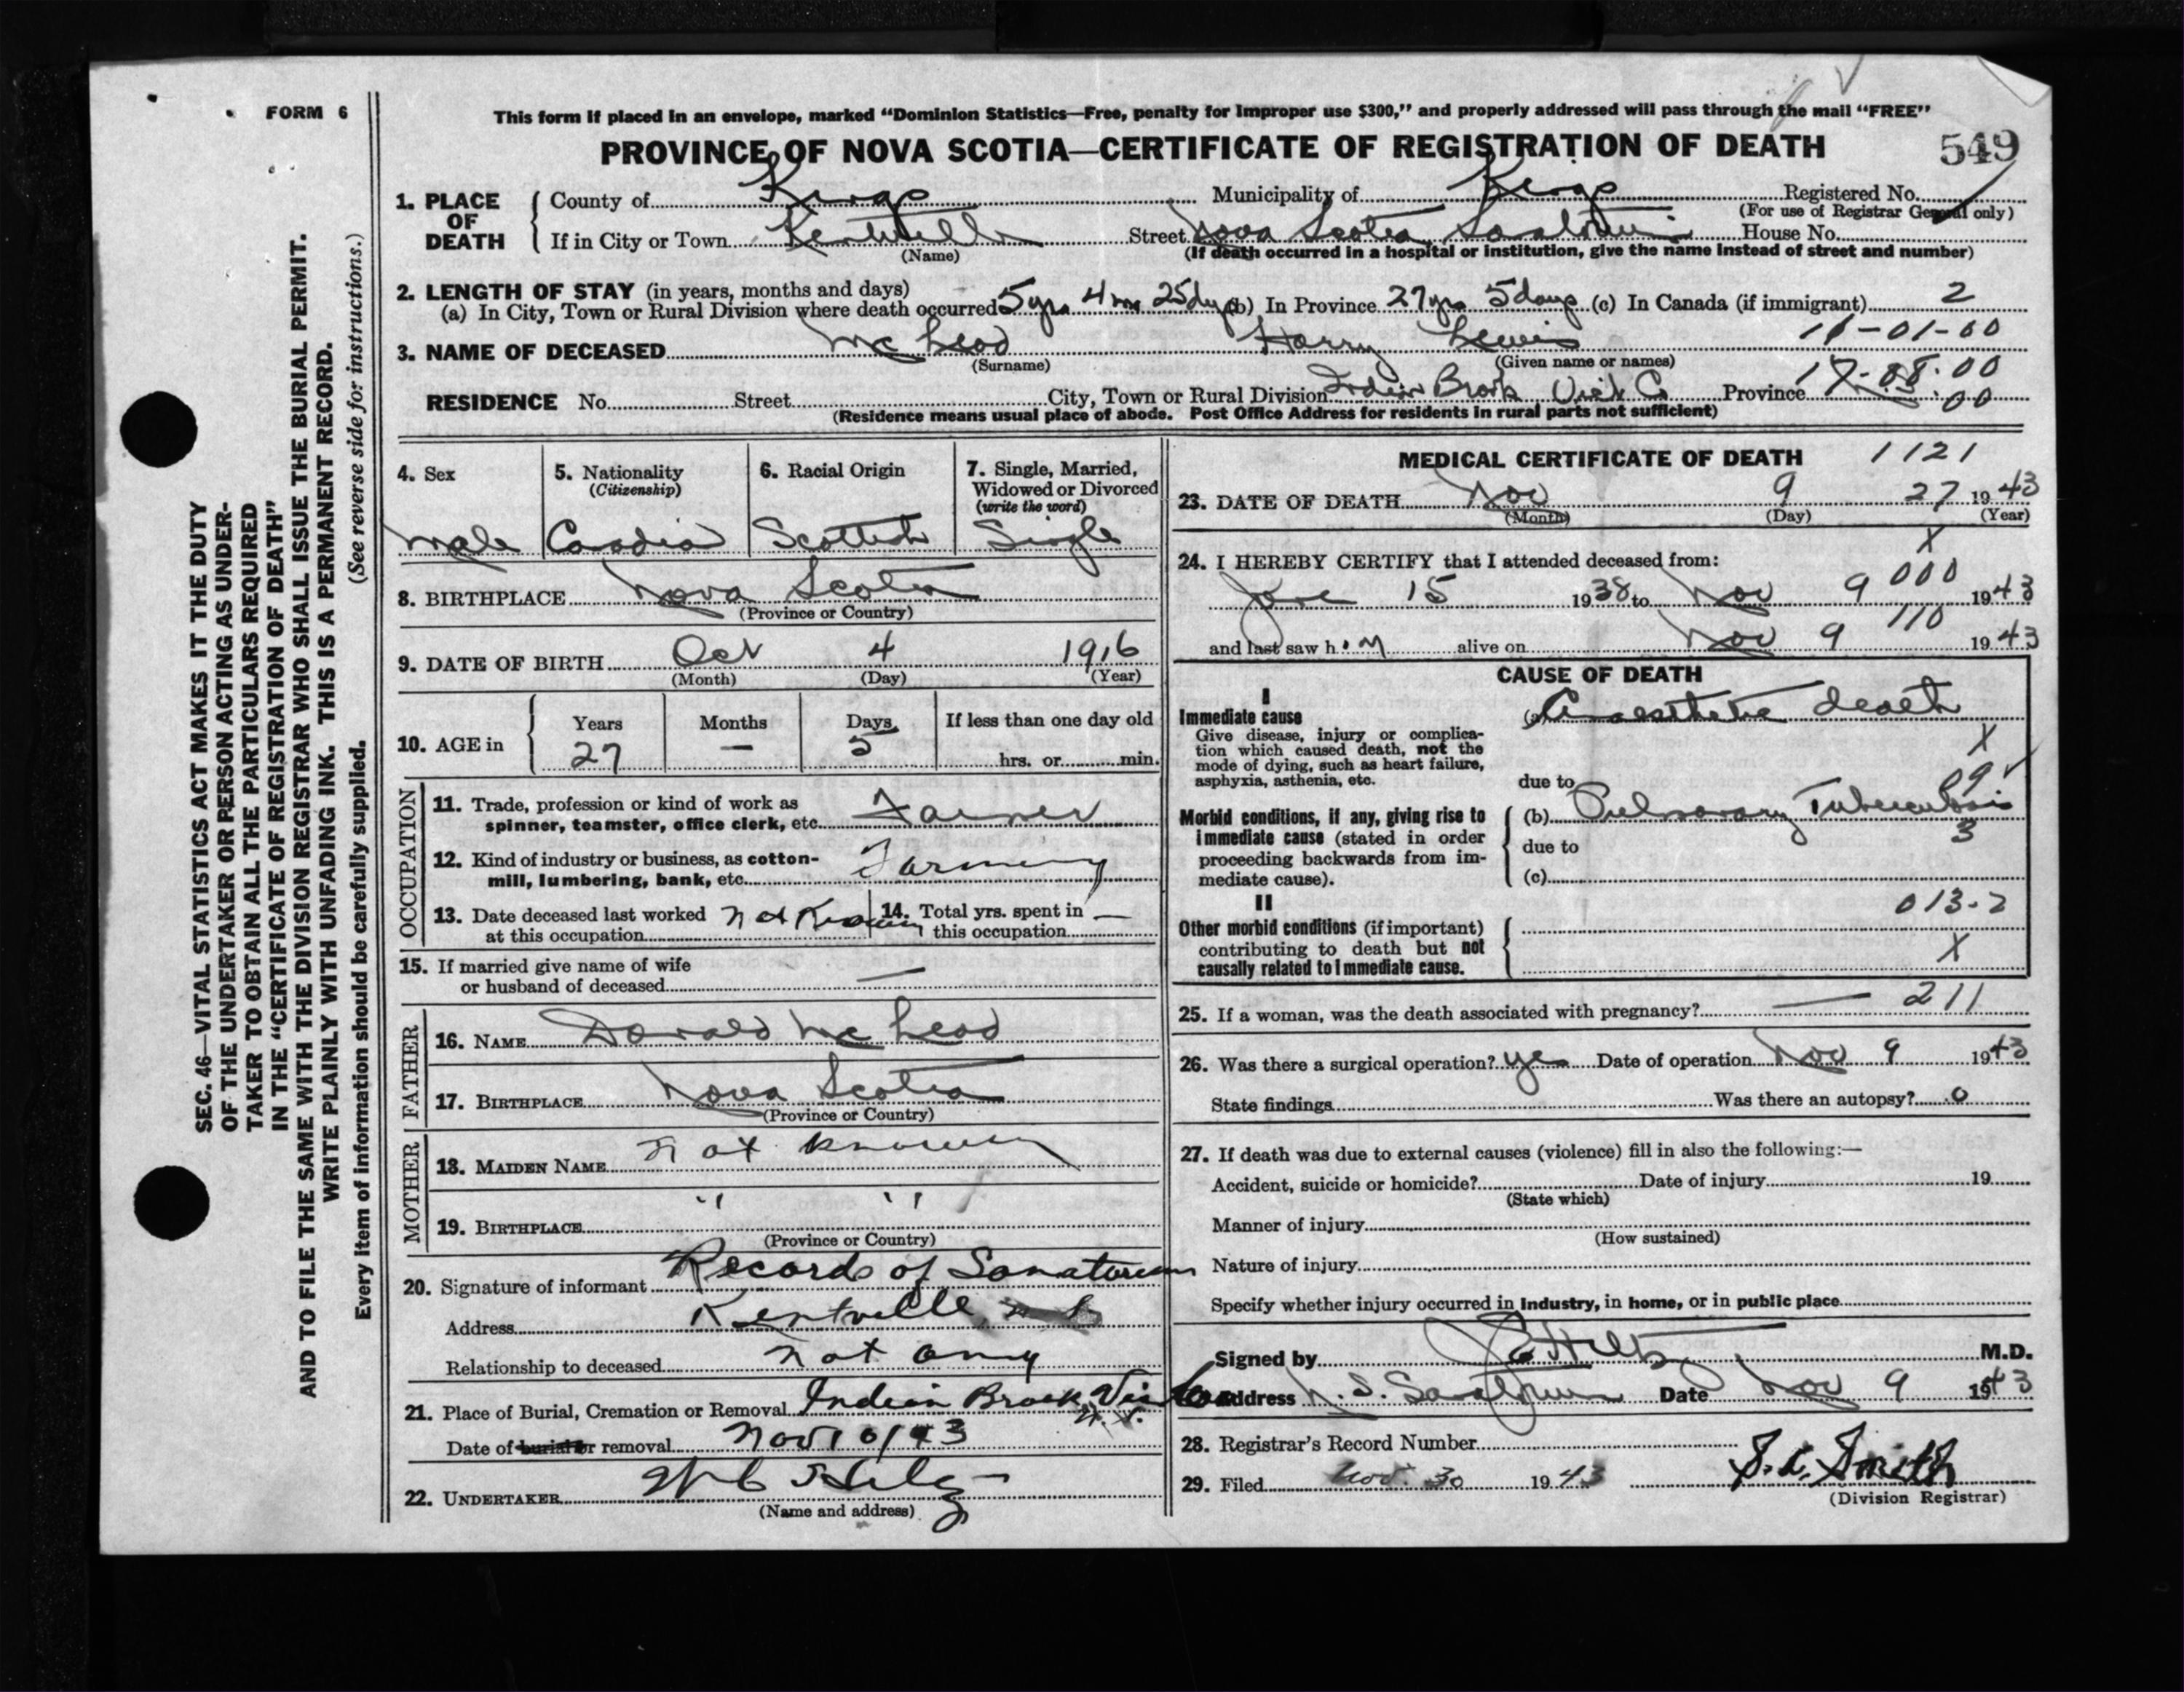 FORM 6
This form if placed in an envelope, marked “Dominion Statistics—Free, penalty for improper use $300,” and properly addressed will pass through the mail “FREE”
PROVINCE OF NOVA SCOTIA—CERTIFICATE OF REGISTRATION OF DEATH
549
1. PLACE OF DEATH
County of Kings Municipality of Kings Registered No.
(For use of Registrar General only)
If in City or Town Kentville Street Nova Scotia Sanatorium House No.
(Name) (If death occurred in a hospital or institution, give the name instead of street and number)
2. LENGTH OF STAY (in years, months and days)
(a) In City, Town or Rural Division where death occurred 5 yrs 4 mos 25 dys (b) In Province 27 yrs 5 days (c) In Canada (if immigrant) 2
11-01-00
3. NAME OF DECEASED Mc Leod Harry Lewis
(Surname) (Given name or names)
RESIDENCE No. Street City, Town or Rural Division Indian Brook Vict Co Province
00
(Residence means usual place of abode. Post Office Address for residents in rural parts not sufficient)
4. Sex
male
5. Nationality
(Citizenship)
Canadian
6. Racial Origin
Scottish
7. Single, Married,
Widowed or Divorced
(write the word)
Single
8. BIRTHPLACE Nova Scotia
(Province or Country)
9. DATE OF BIRTH Oct 4 1916
(Month) (Day) (Year)
10. AGE in
Years Months Days If less than one day old
27 — 5 hrs. or min.
OCCUPATION
11. Trade, profession or kind of work as
spinner, teamster, office clerk, etc. Farmer
12. Kind of industry or business, as cotton-
mill, lumbering, bank, etc. Farming
13. Date deceased last worked
at this occupation not Known
14. Total yrs. spent in
this occupation —
15. If married give name of wife
or husband of deceased —
FATHER
16. NAME Donald Mc Leod
17. BIRTHPLACE Nova Scotia
(Province or Country)
MOTHER
18. MAIDEN NAME not known
19. BIRTHPLACE " "
(Province or Country)
20. Signature of informant Records of Sanatorium
Address Kentville, N S
Relationship to deceased not any
21. Place of Burial, Cremation or Removal Indian Brook, Vic Co
N.S.
Date of burial or removal Nov 10/43
22. UNDERTAKER
(Name and address)
MEDICAL CERTIFICATE OF DEATH 1121
23. DATE OF DEATH Nov 9 27 1943
(Month) (Day) (Year)
X
24. I HEREBY CERTIFY that I attended deceased from:
000
June 15 1938 to Nov 9 1943
110
and last saw h im alive on Nov 9 1943
CAUSE OF DEATH
I
Immediate cause
Give disease, injury or complica-
tion which caused death, not the
mode of dying, such as heart failure,
asphyxia, asthenia, etc.
(a) Anaesthetic death
X
due to
09
Morbid conditions, if any, giving rise to
immediate cause (stated in order
proceeding backwards from im-
mediate cause).
(b) Pulmonary Tuberculosis
3
due to
(c)
013-2
II
Other morbid conditions (if important)
contributing to death but not
causally related to immediate cause.
X
25. If a woman, was the death associated with pregnancy? — 211
26. Was there a surgical operation? yes Date of operation Nov 9 1943
State findings Was there an autopsy? 0
27. If death was due to external causes (violence) fill in also the following:—
Accident, suicide or homicide? Date of injury 19
(State which)
Manner of injury
(How sustained)
Nature of injury
Specify whether injury occurred in industry, in home, or in public place
Signed by M.D.
Address N. S. Sanatorium Date Nov 9 1943
28. Registrar's Record Number
29. Filed Nov. 30 1943 Smith
(Division Registrar)
SEC. 46—VITAL STATISTICS ACT MAKES IT THE DUTY
OF THE UNDERTAKER OR PERSON ACTING AS UNDER-
TAKER TO OBTAIN ALL THE PARTICULARS REQUIRED
IN THE “CERTIFICATE OF REGISTRATION OF DEATH”
AND TO FILE THE SAME WITH THE DIVISION REGISTRAR WHO SHALL ISSUE THE BURIAL PERMIT.
WRITE PLAINLY WITH UNFADING INK. THIS IS A PERMANENT RECORD.
Every item of information should be carefully supplied. (See reverse side for instructions.)